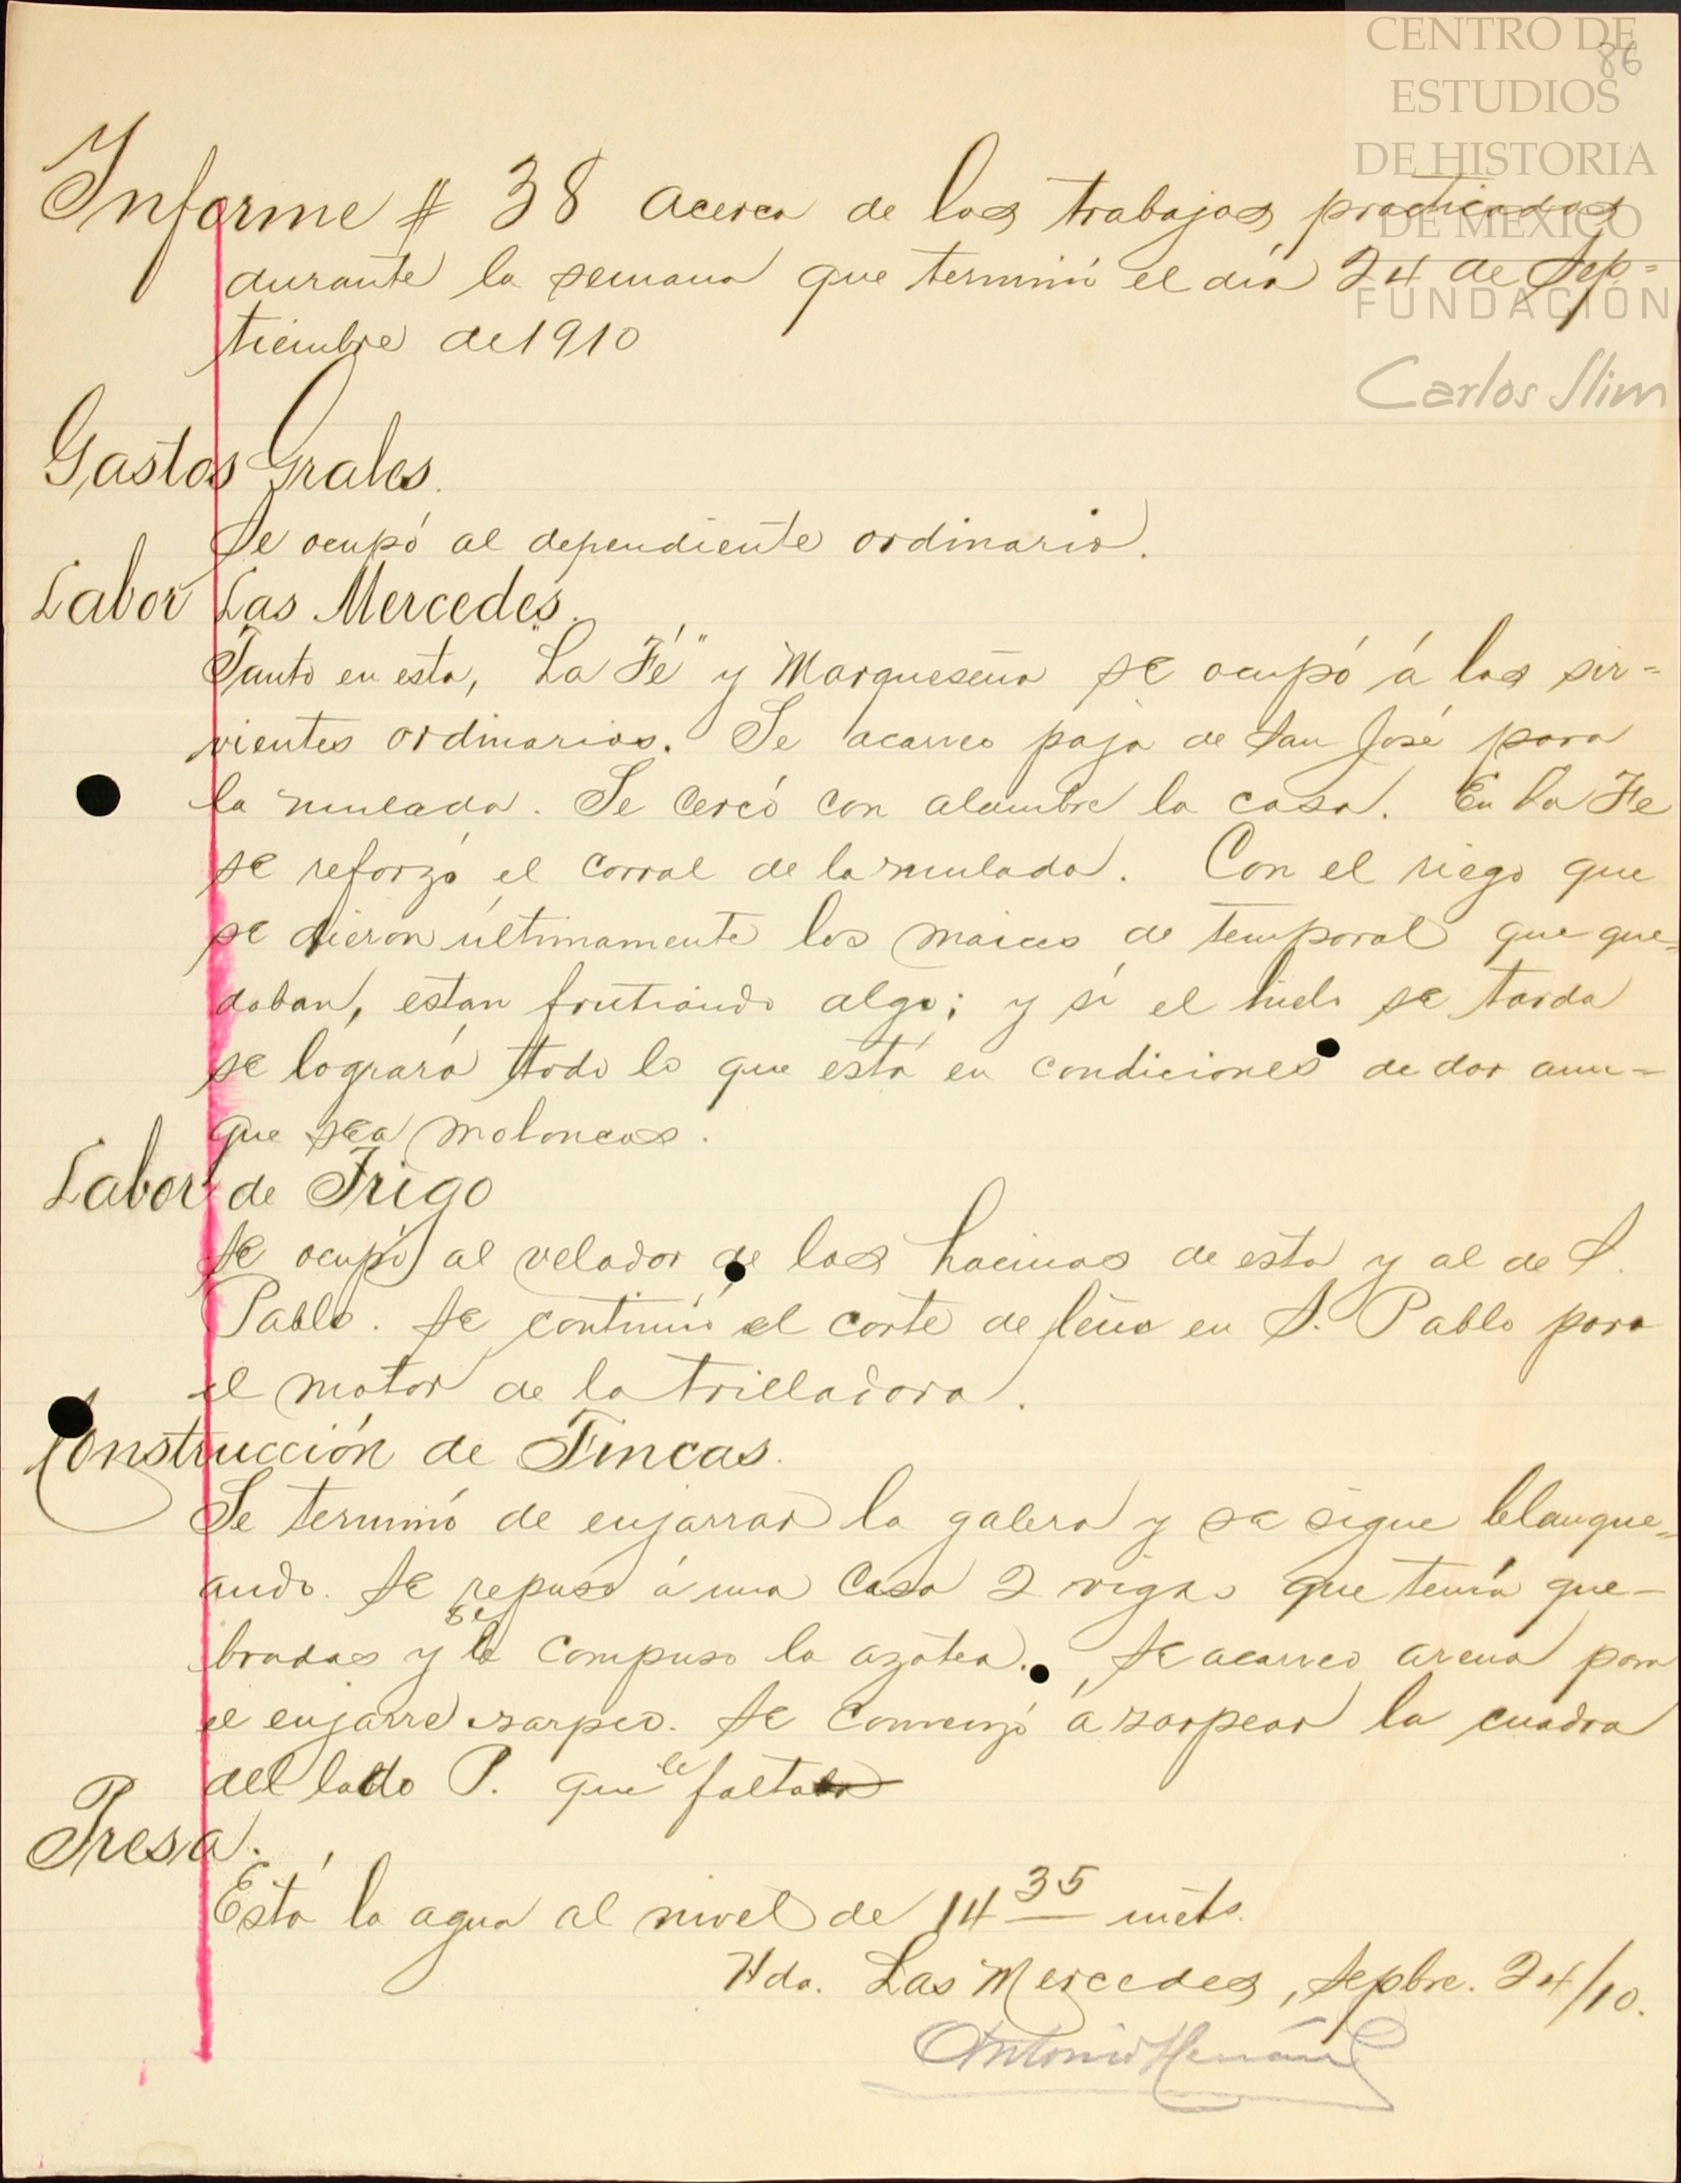 CENTRO DE
ESTUDIOS
DE HISTORIA
DE MÉXICO
FUNDACIÓN
Carlos Slim
86
Informe # 38 acerca de los trabajos practicados
durante la semana que terminó el día 24 de Sep=
tiembre de 1910
Gastos Grales.
Se ocupó al dependiente ordinario.
Labor Las Mercedes.
Tanto en esta, "La Fé" y Marqueseña se ocupó á los sir=
vientes ordinarios. Se acarreo paja de San José para
la mulada. Se cercó con alambre la casa. En La Fe
se reforzó el corral de la mulada. Con el riego que
se dieron últimamente los maices de temporal que que=
daban, estan frutiando algo; y si el hielo se tarda
se logrará todo lo que está en condiciones de dar aun=
que sea moloncos.
Labor de Trigo
Se ocupó al velador de las hacinas de esta y al de S.
Pablo. Se continuó el corte de leña en S. Pablo para
el motor de la trilladora.
Construcción de Fincas.
Se terminó de enjarrar la galera y se sigue blanque=
ando. Se repuso á una casa 2 vigas que tenía que-
bradas y se le compuso la azotea. Se acarreo arena para
el enjarre zarpeo. Se comenzó á zarpear la cuadra
del lado P. que le falta
Presa.
Está la agua al nivel de 14 35 mets.
Hda. Las Mercedes, Sepbre. 24/10.
Antonio